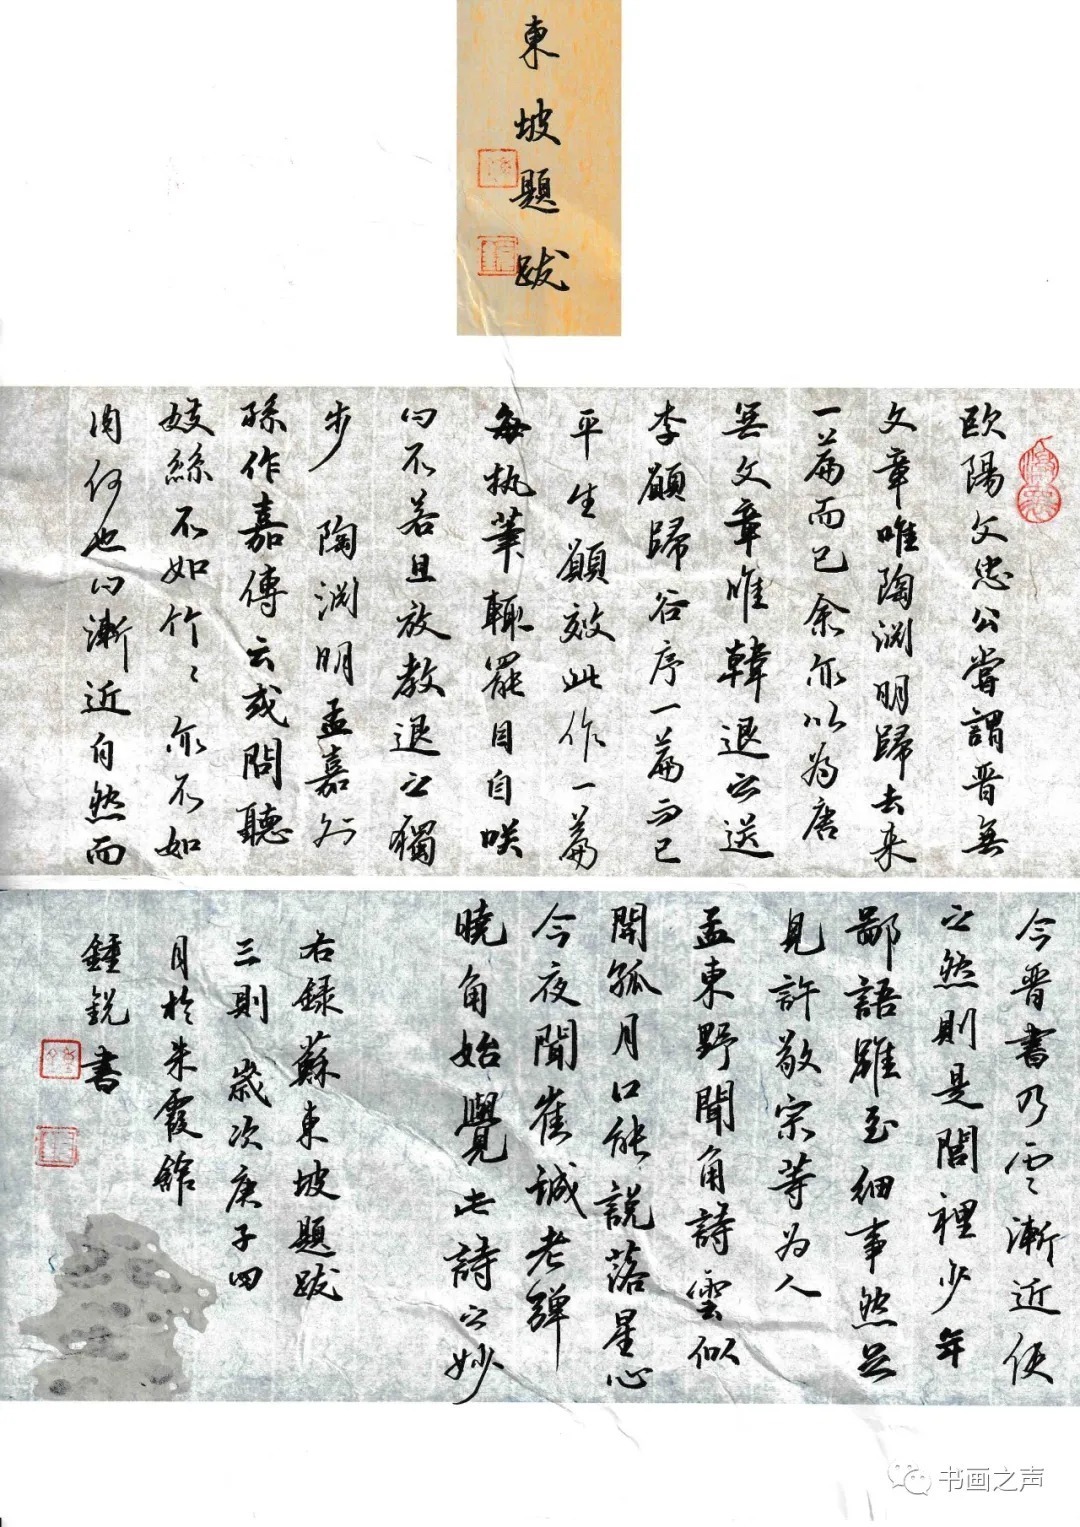 東坡題跋
歐陽文忠公嘗謂晋無
文章唯陶渊明歸去来
一篇而已余亦以為唐
無文章唯韓退之送
李願歸谷序一篇而已
平生願效此作一篇
每執筆輒罷目自咲
曰不若且放教退之獨
步 陶渊明孟嘉外
孫作嘉傳云或問聽
妓絲不如竹〻亦不如
肉何也曰漸近自然而
今晋書乃云〻漸近使
之然則是閭裡少年
鄙語雖至细事然足
見許敬宗等为人
孟東野聞角詩雲似
開孤月口能説落星心
今夜聞崔誠老彈
曉角始覺此詩之妙
右録蘇東坡題跋
三則 歲次庚子四
月於朱霞館
鍾鋭書
书画之声